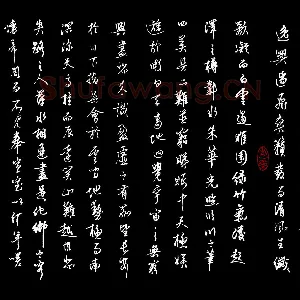 逸興遄飛爽籟發而清風生纖
歌凝而白雲遏睢園綠竹氣凌彭
澤之樽鄴水朱華光照臨川之筆
四美具二難並窮睇眄於中天極娛
遊於暇日天高地迥覺宇宙之無窮
興盡悲來識盈虛之有數望長安
於日下指吳會於雲間地勢極而南
溟深天柱高而北辰遠關山難越誰悲
失路之人萍水相逢盡是他鄉之客
懷帝閽而不見奉宣室以何年嗟
Shufawang.CN